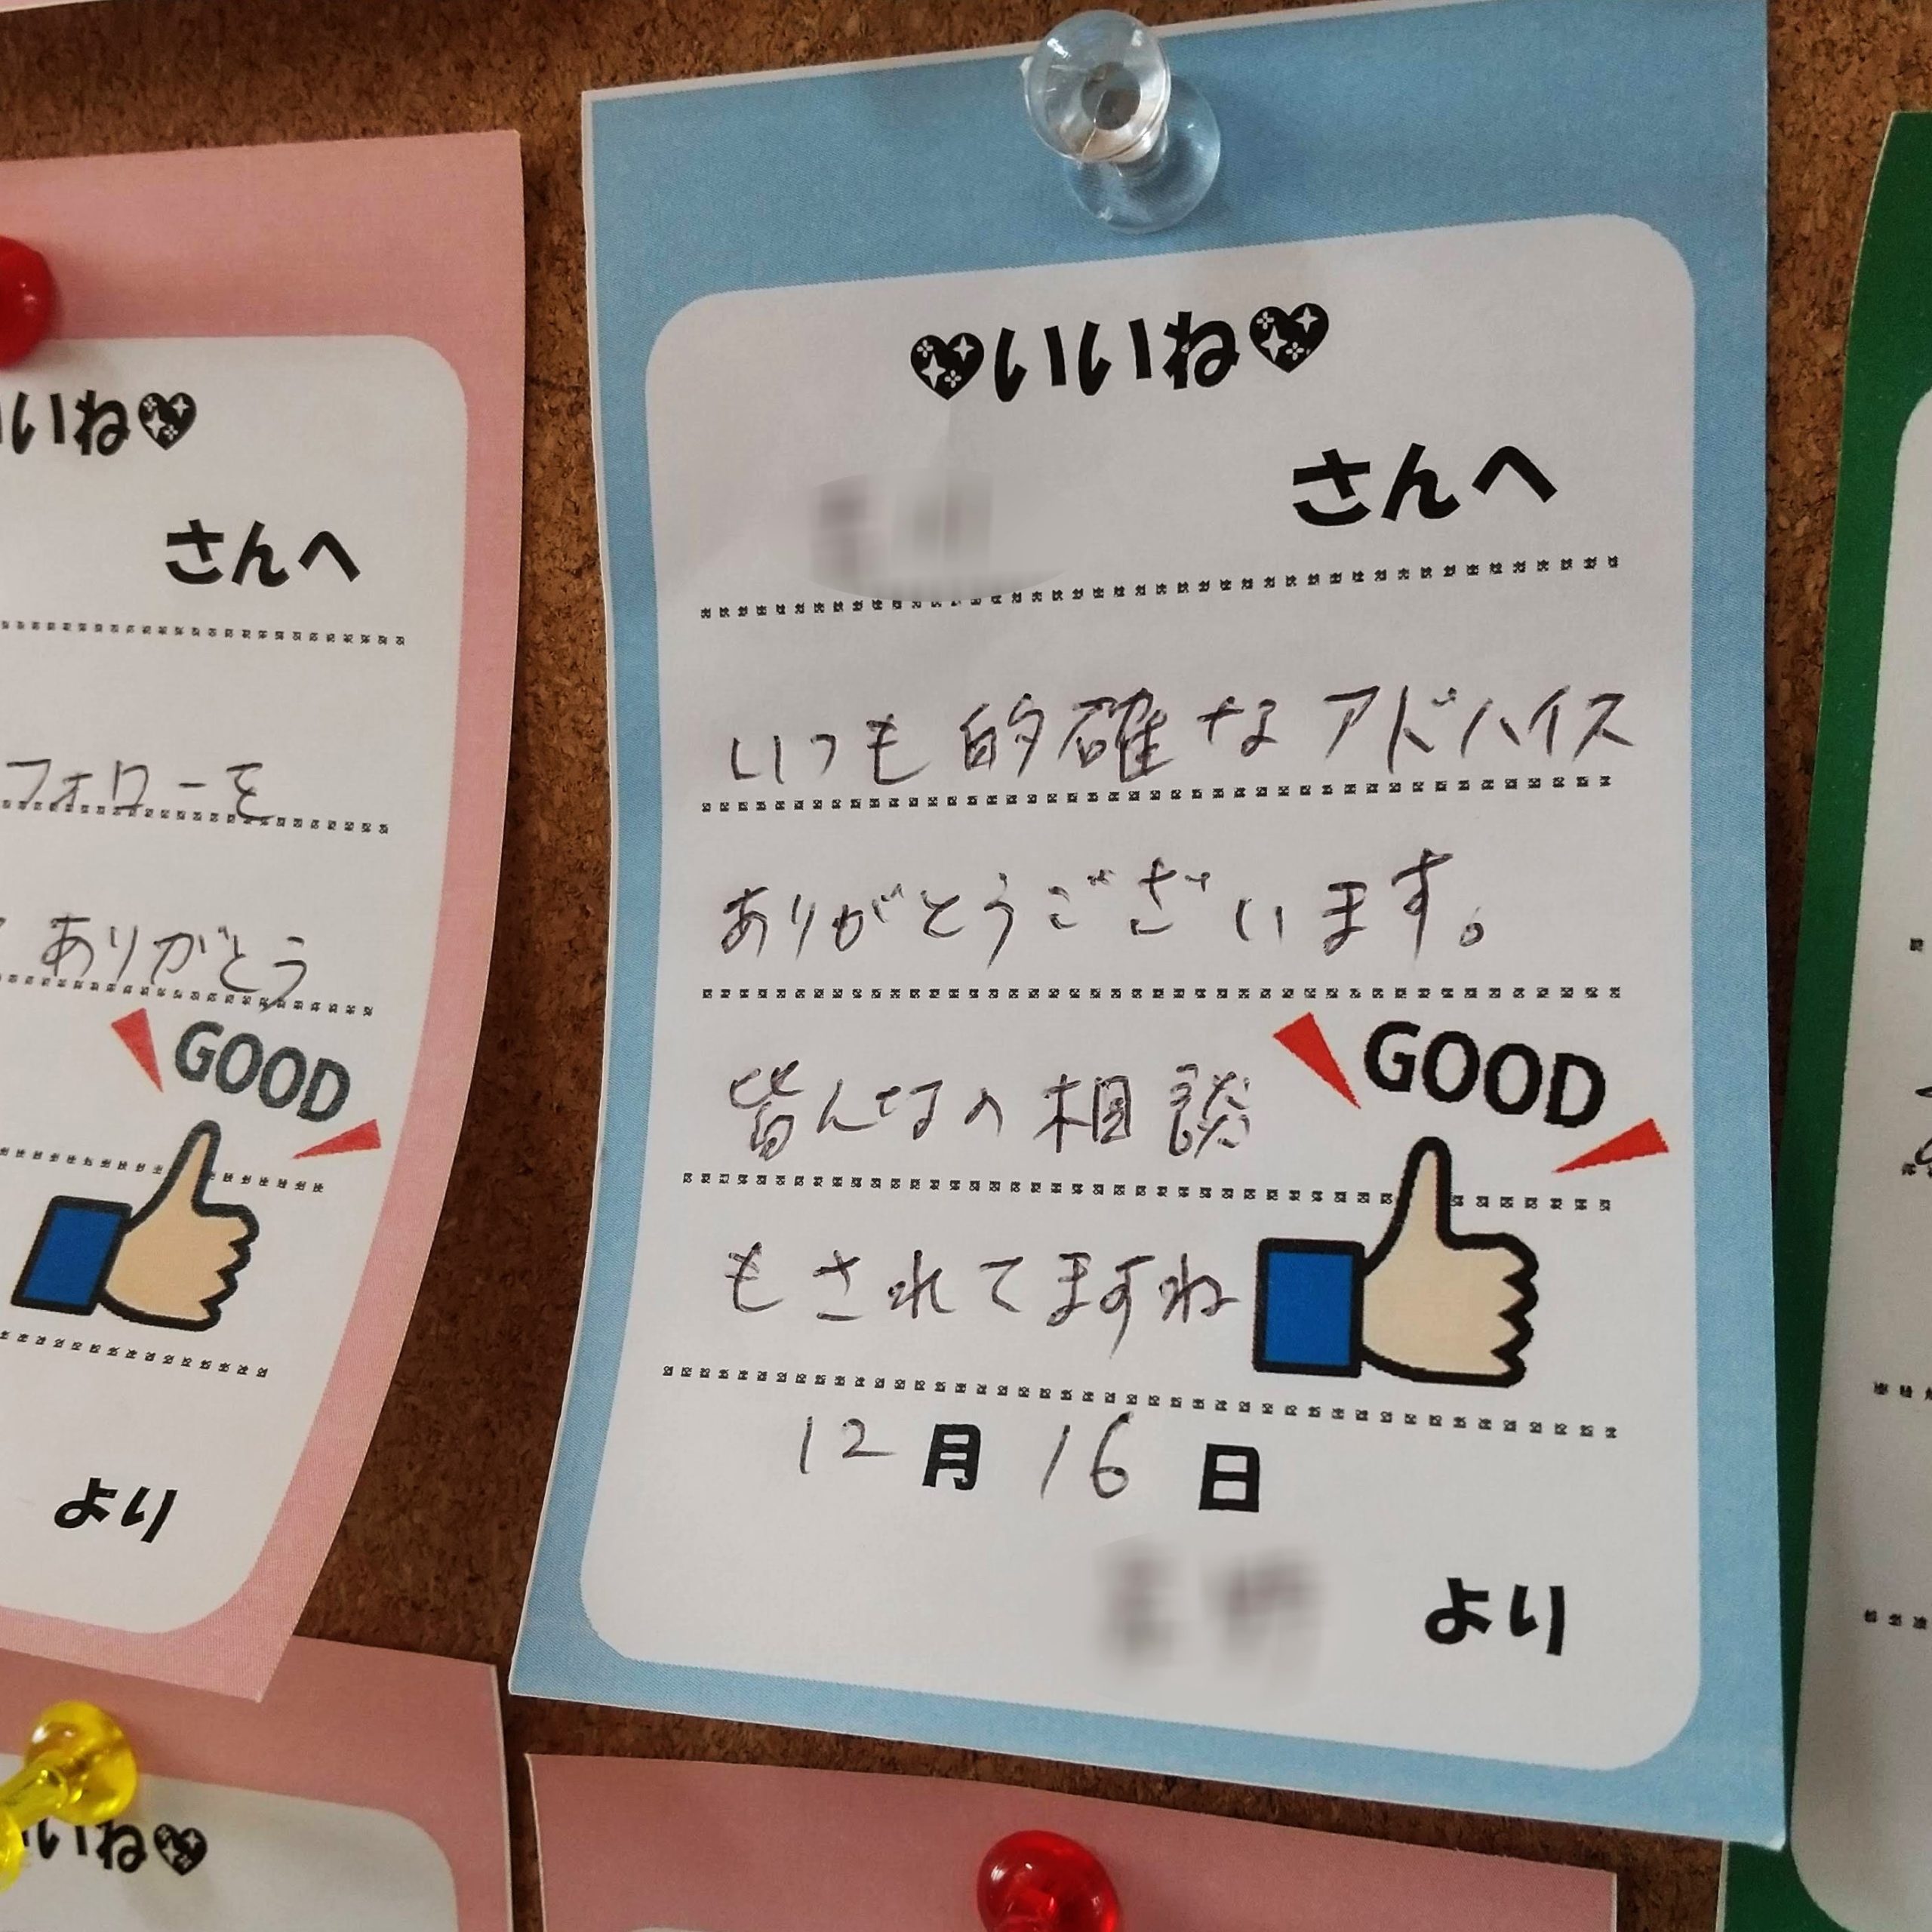 いいね
さんへ
フォローを
ありがとう
GOOD
より
いいね
さんへ
いつも的確なアドバイス
ありがとうございます。
皆んなの相談
GOOD
もされてますね
12月16日
より
いいね